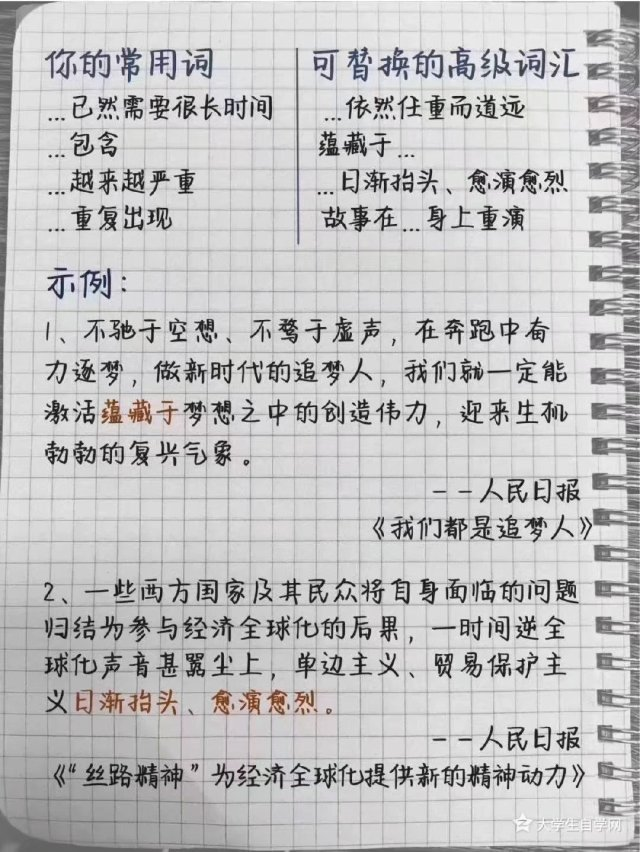 你的常用词
可替换的高级词汇
…已然需要很长时间
…依然任重而道远
…包含
蕴藏于…
…越来越严重
…日渐抬头、愈演愈烈
…重复出现
故事在…身上重演
示例：
1、不驰于空想、不骛于虚声，在奔跑中奋
力逐梦，做新时代的追梦人，我们就一定能
激活蕴藏于梦想之中的创造伟力，迎来生机
勃勃的复兴气象。
--人民日报
《我们都是追梦人》
2、一些西方国家及其民众将自身面临的问题
归结为参与经济全球化的后果，一时间逆全
球化声音甚嚣尘上，单边主义、贸易保护主
义日渐抬头、愈演愈烈。
--人民日报
《“丝路精神”为经济全球化提供新的精神动力》
大学生自学网